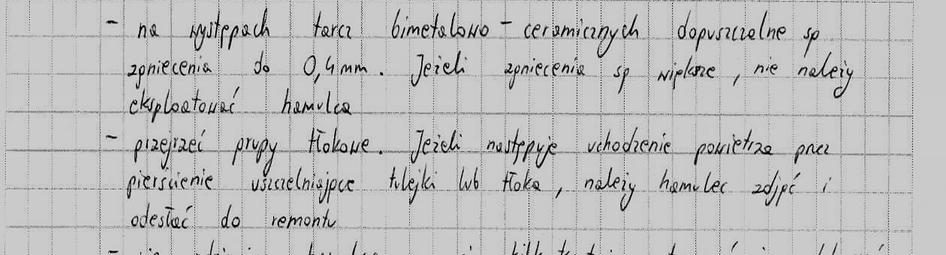 - na występach tarcz bimetalowo - ceramicznych dopuszczalne są
zgniecenia do 0,4 mm. Jeżeli zgniecenia są większe, nie należy
eksploatować hamulca
- przejrzeć grupy tłokowe. Jeżeli następuje uchodzenie powietrza przez
pierścienie uszczelniające tulejki lub tłoka, należy hamulec zdjąć i
odesłać do remontu